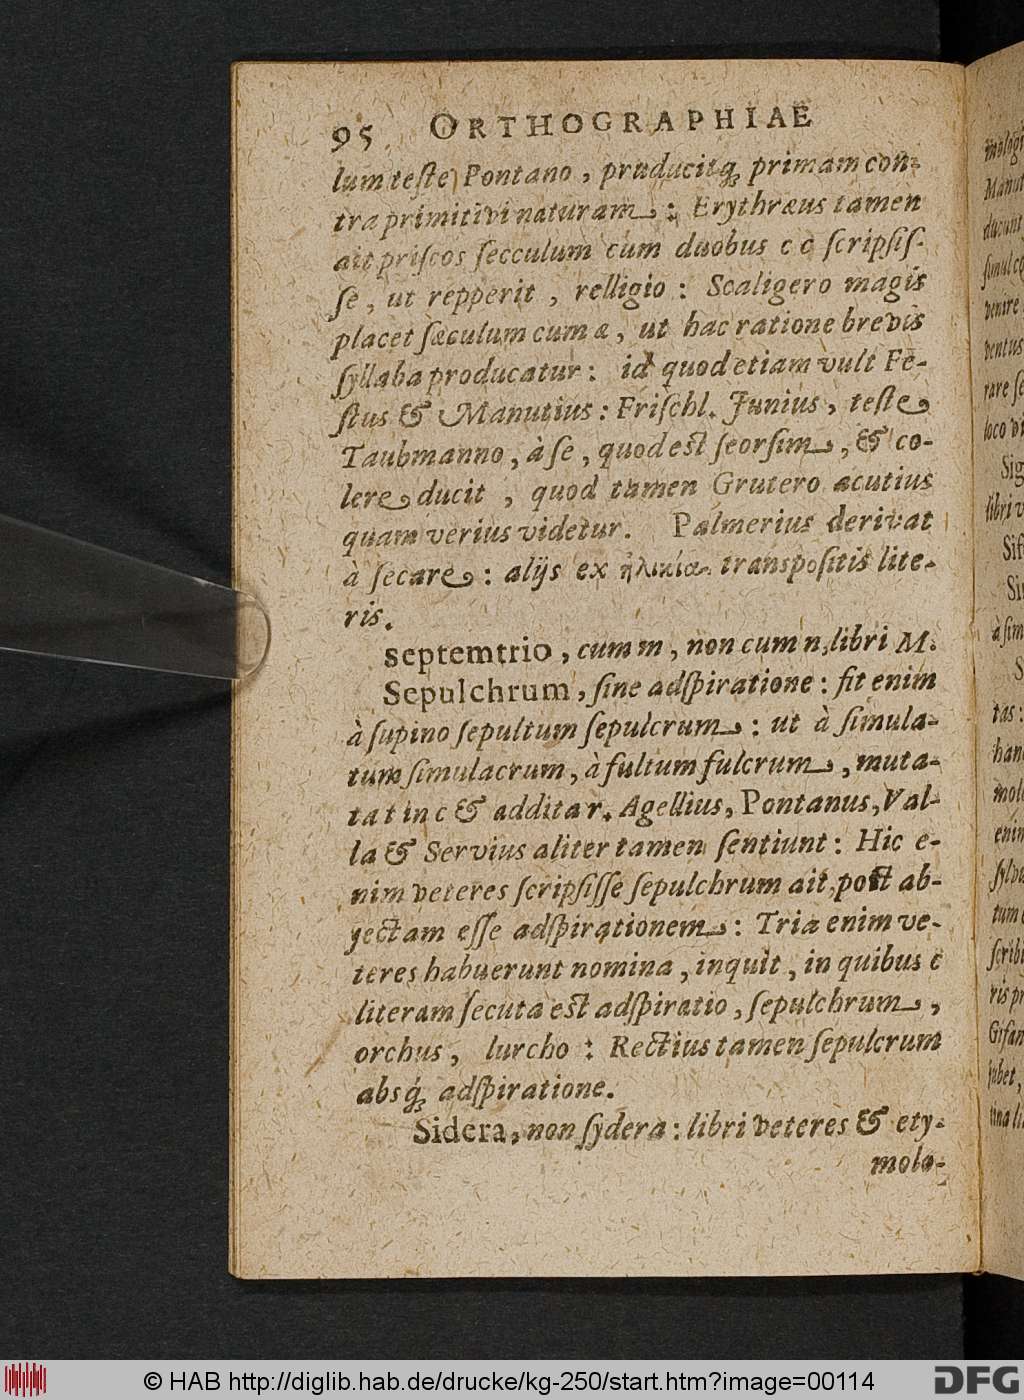 95 ORTHOGRAPHIAE
lum teſte Pontano, pruducitq́; primam con-
tra primitivi naturam: Erythræus tamen
ait priſcos ſecculum cum duobus c c ſcripſiſ-
ſe, ut repperit, relligio: Scaligero magis
placet ſæculum cum æ, ut hac ratione brevis
ſyllaba producatur: id quod etiam vult Fe-
ſtus & Manutius: Friſchl. Junius, teſte
Taubmanno, à ſe, quod eſt ſeorſim, & co-
lere ducit, quod tamen Grutero acutius
quam verius videtur. Palmerius derivat
à ſecare: alijs ex ἡλικία transpoſitis lite-
ris.
septemtrio, cum m, non cum n, libri M.
Sepulchrum, ſine adſpiratione: fit enim
à ſupino ſepultum ſepulcrum: ut à ſimula-
tum ſimulacrum, à fultum fulcrum, muta-
ta t in c & addita r. Agellius, Pontanus, Val-
la & Servius aliter tamen ſentiunt: Hic e-
nim veteres ſcripſiſſe ſepulchrum ait, poſt ab-
jectam eſſe adſpirationem: Tria enim ve-
teres habuerunt nomina, inquit, in quibus c
literam ſecuta eſt adſpiratio, ſepulchrum,
orchus, lurcho: Rectius tamen ſepulcrum
absq́; adſpiratione.
Sidera, non ſydera: libri veteres & ety-
molo-
Manut
ducunt
venire
ventus
rare ſe
Sig
libri v
Sif
à ſim
tas:
enim
tum
ſcribi
Gifan
jubet,
© HAB http://diglib.hab.de/drucke/kg-250/start.htm?image=00114
DFG